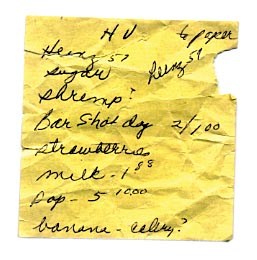 HV to paper
Heinz 57 Heinz 57
sugar
shrimp?
Bar S hot dg 2/1.00
strawberries
milk - 1 88
pop - 5 10.00
banana - celery?